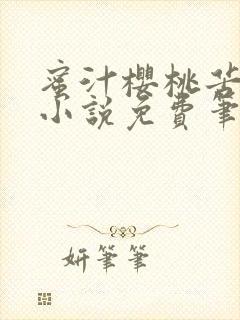 蜜汁櫻桃苦
小說免費筆
妍筆筆